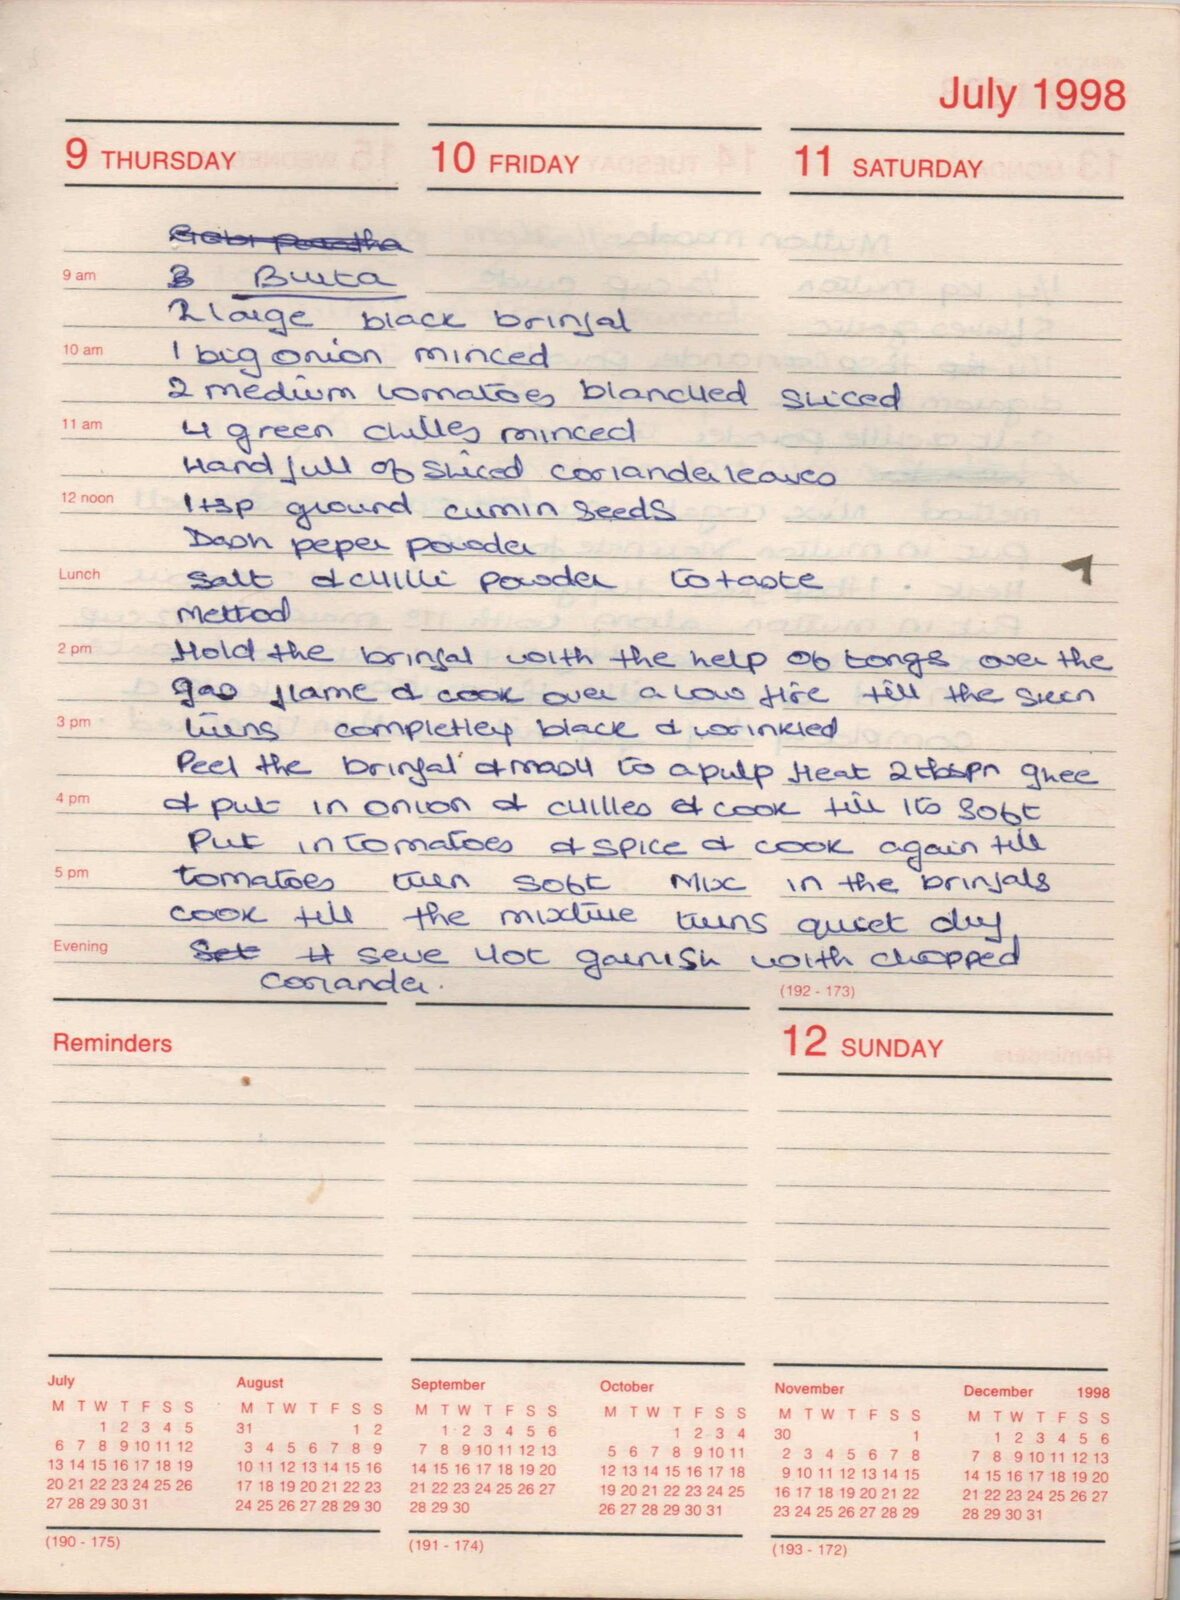 July 1998
9 THURSDAY 10 FRIDAY 11 SATURDAY
Gobi paratha
9 am Burta
2 large black brinjal
10 am 1 big onion minced
2 medium tomatoes blanched sliced
11 am 4 green chilles minced
Hand full of sliced coriander leaves
12 noon 1 tsp ground cumin seeds
Dash peper powder
Lunch Salt & chilli powder to taste
Method
2 pm Hold the brinjal with the help of tongs over the
gas flame & cook over a low fire till the skin
3 pm turns completley black & wrinkled
Peel the brinjal & mash to a pulp Heat 2 tbspn ghee
4 pm & put in onion & chilles & cook till its soft
Put in tomatoes & spice & cook again till
5 pm tomatoes turn soft Mix in the brinjals
cook till the mixture turns quiet dry
Evening Set # seve hot garnish with chopped
coriander.
(192 - 173)
Reminders
12 SUNDAY
July
M T W T F S S
1 2 3 4 5
6 7 8 9 10 11 12
13 14 15 16 17 18 19
20 21 22 23 24 25 26
27 28 29 30 31
August
M T W T F S S
31 1 2
3 4 5 6 7 8 9
10 11 12 13 14 15 16
17 18 19 20 21 22 23
24 25 26 27 28 29 30
September
M T W T F S S
1 2 3 4 5 6
7 8 9 10 11 12 13
14 15 16 17 18 19 20
21 22 23 24 25 26 27
28 29 30
October
M T W T F S S
1 2 3 4
5 6 7 8 9 10 11
12 13 14 15 16 17 18
19 20 21 22 23 24 25
26 27 28 29 30 31
November
M T W T F S S
30 1
2 3 4 5 6 7 8
9 10 11 12 13 14 15
16 17 18 19 20 21 22
23 24 25 26 27 28 29
December 1998
M T W T F S S
1 2 3 4 5 6
7 8 9 10 11 12 13
14 15 16 17 18 19 20
21 22 23 24 25 26 27
28 29 30 31
(190 - 175) (191 - 174) (193 - 172)